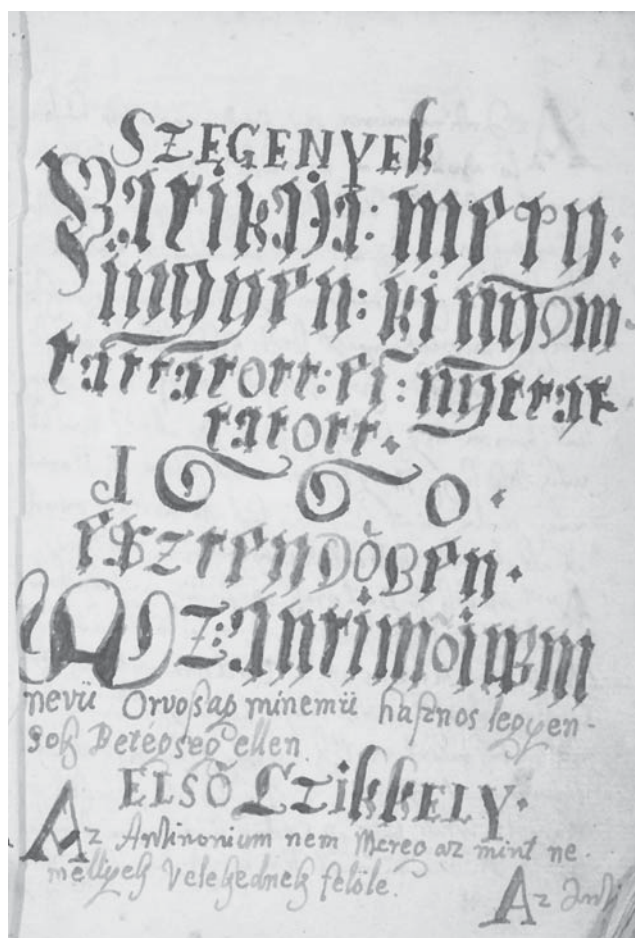 SZEGENYEk
Patikaja: mely:
ingyen: ki nyom
tattatott: es:
tatott.
1660.
eSztendőBen.
AZ: Antimoniuvm
nevü Orvoßag minemü hasznos legyen
sok Betegseg ellen
ELSŐ CzikkELY.
Az Antinonium nem Mereg az mint ne
mellyek Velekednek felöle.
Az Anti